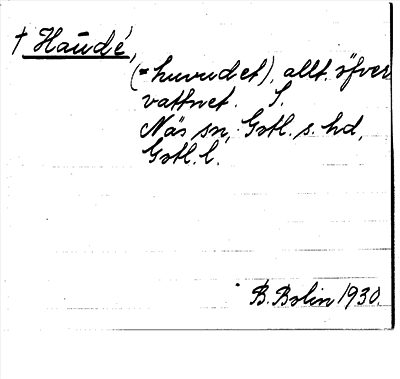 † Haudé,
(= huvudet), allt. öfver
vattnet. S.
Näs sn, Gstl. s. hd,
Gstl. l.
B. Bolin 1930.